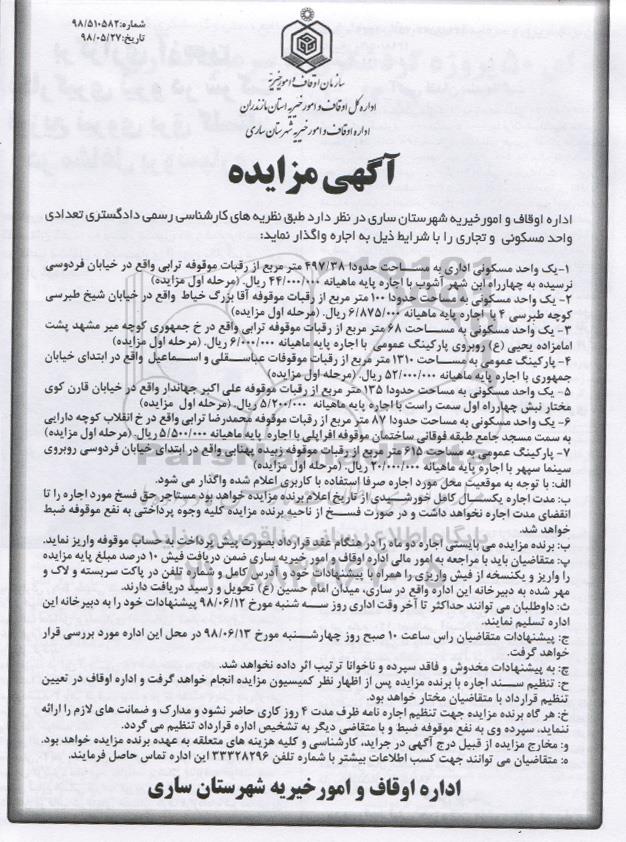 شماره: ۹۸/۵۱۰۵۸۲
تاریخ: ۹۸/۰۵/۲۷
سازمان اوقاف و امور خیریه
اداره کل اوقاف و امور خیریه استان مازندران
اداره اوقاف و امور خیریه شهرستان ساری
آگهی مزایده
اداره اوقاف و امور خیریه شهرستان ساری در نظر دارد طبق نظریه های کارشناسی رسمی دادگستری تعدادی
واحد مسکونی و تجاری را با شرایط ذیل به اجاره واگذار نماید:
۱- یک واحد مسکونی اداری به مساحت حدودا ۴۹۷/۳۸ متر مربع از رقبات موقوفه ترابی واقع در خیابان فردوسی
نرسیده به چهارراه ابن شهر آشوب با اجاره پایه ماهیانه ۴۴/۰۰۰/۰۰۰ ریال. (مرحله اول مزایده)
۲- یک واحد مسکونی به مساحت حدودا ۱۰۰ متر مربع از رقبات موقوفه آقا بزرگ خیاط واقع در خیابان شیخ طبرسی
کوچه طبرسی ۴ با اجاره پایه ماهیانه ۶/۸۷۵/۰۰۰ ریال. (مرحله اول مزایده)
۳- یک واحد مسکونی به مساحت ۶۸ متر مربع از رقبات موقوفه ترابی واقع در خ جمهوری کوچه میر مشهد پشت
امامزاده یحیی (ع) روبروی پارکینگ عمومی با اجاره پایه ماهیانه ۶/۰۰۰/۰۰۰ ریال. (مرحله اول مزایده)
۴- پارکینگ عمومی به مساحت ۱۳۱۰ متر مربع از رقبات موقوفات عباسقلی و اسماعیل واقع در ابتدای خیابان
جمهوری با اجاره پایه ماهیانه ۵۲/۰۰۰/۰۰۰ ریال. (مرحله اول مزایده)
۵- یک واحد مسکونی به مساحت حدودا ۱۳۵ متر مربع از رقبات موقوفه علی اکبر جهاندار واقع در خیابان قارن کوی
مختار نبش چهارراه اول سمت راست با اجاره پایه ماهیانه ۵/۲۰۰/۰۰۰ ریال. (مرحله اول مزایده)
۶- یک واحد مسکونی به مساحت حدودا ۸۷ متر مربع از رقبات موقوفه محمدرضا ترابی واقع در خ انقلاب کوچه دارایی
به سمت مسجد جامع طبقه فوقانی ساختمان موقوفه افراپلی با اجاره پایه ماهیانه ۵/۵۰۰/۰۰۰ ریال. (مرحله اول مزایده)
۷- پارکینگ عمومی به مساحت ۶۱۵ متر مربع از رقبات موقوفه زبیده پهنابی واقع در ابتدای خیابان فردوسی روبروی
سینما سپهر با اجاره پایه ماهیانه ۲۰/۰۰۰/۰۰۰ ریال. (مرحله اول مزایده)
الف: با توجه به موقعیت محل مورد اجاره صرفا استفاده با کاربری اعلام شده واگذار می شود.
ب: مدت اجاره یکسال کامل خورشیدی از تاریخ اعلام برنده مزایده خواهد بود مستاجر حق فسخ مورد اجاره را تا
انقضای مدت اجاره نخواهد داشت و در صورت فسخ از ناحیه برنده مزایده کلیه وجوه پرداختی به نفع موقوفه ضبط
خواهد شد.
ب: برنده مزایده می بایستی اجاره دو ماه را در هنگام عقد قرارداد بصورت پیش پرداخت به حساب موقوفه واریز نماید.
پ: متقاضیان باید با مراجعه به امور مالی اداره اوقاف و امور خیریه ساری ضمن دریافت فیش ۱۰ درصد مبلغ پایه مزایده
را واریز و یکنسخه از فیش واریزی را همراه با پیشنهادات خود و آدرس کامل و شماره تلفن در پاکت سربسته و لاک و
مهر شده به دبیرخانه این اداره واقع در ساری، میدان امام حسین (ع) تحویل و رسید دریافت دارند.
ث: داوطلبان می توانند حداکثر تا آخر وقت اداری روز سه شنبه مورخ ۹۸/۰۶/۱۲ پیشنهادات خود را به دبیرخانه این
اداره تسلیم نمایند.
ج: پیشنهادات متقاضیان راس ساعت ۱۰ صبح روز چهارشنبه مورخ ۹۸/۰۶/۱۳ در محل این اداره مورد بررسی قرار
خواهد گرفت.
چ: به پیشنهادات مخدوش و فاقد سپرده و ناخوانا ترتیب اثر داده نخواهد شد.
ح: تنظیم سند اجاره با برنده مزایده پس از اظهار نظر کمیسیون مزایده انجام خواهد گرفت و اداره اوقاف در تعیین
تنظیم قرارداد با متقاضیان مختار خواهد بود.
خ: هر گاه برنده مزایده جهت تنظیم اجاره نامه ظرف مدت ۴ روز کاری حاضر نشود و مدارک و ضمانت های لازم را ارائه
ننماید، سپرده وی به نفع موقوفه ضبط و با متقاضی دیگر به تشخیص اداره قرارداد تنظیم می گردد.
و: مخارج مزایده از قبیل درج آگهی در جراید، کارشناسی و کلیه هزینه های متعلقه به عهده برنده مزایده خواهد بود.
ه: متقاضیان می توانند جهت کسب اطلاعات بیشتر با شماره تلفن ۳۳۳۲۸۲۹۶ این اداره تماس حاصل فرمایند.
اداره اوقاف و امور خیریه شهرستان ساری